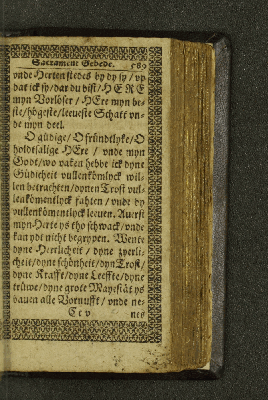 Sacrament Gebede. 589
vnde Herten stedes by dy sy / vp
dat ick sy / dar du bist / HERE
myn Vorlöser / HEre myn be-
ste / högeste / leeueste Schatt vn-
de myn deel.
O güdige / O fründtlyke / O
holdtsalige HEre / vnde myn
Godt / wo vaken hebbe ick dyne
Güdicheit vullenkömlyck wil-
len betrachten / dynen Trost vul-
lenkömentlyck fahten / vnde dy
vullenkömentlyck leeuen. Auerst
myn Herte ys tho schwack / vnde
kan ydt nicht begrypen. Wente
dyne Herrlicheit / dyne
cheit / dyne schönheit / dyn Trost /
dyne Krafft / dyne Leeffte / dyne
trüwe / dyne grote Mayestät ys
bauen alle Vornufft / vnde ne-
Cc v nes